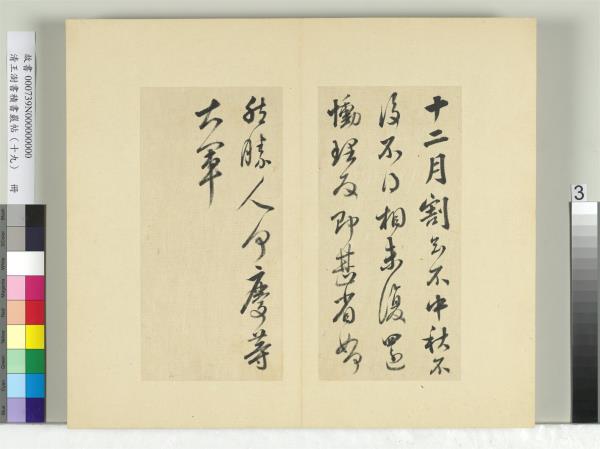 十二月割至不中秋不
復不得相未復還
慟理為即甚省如何
然勝人何慶等
大軍
故書 000739N000000000
清王澍書積書巖帖（十九） 冊
3